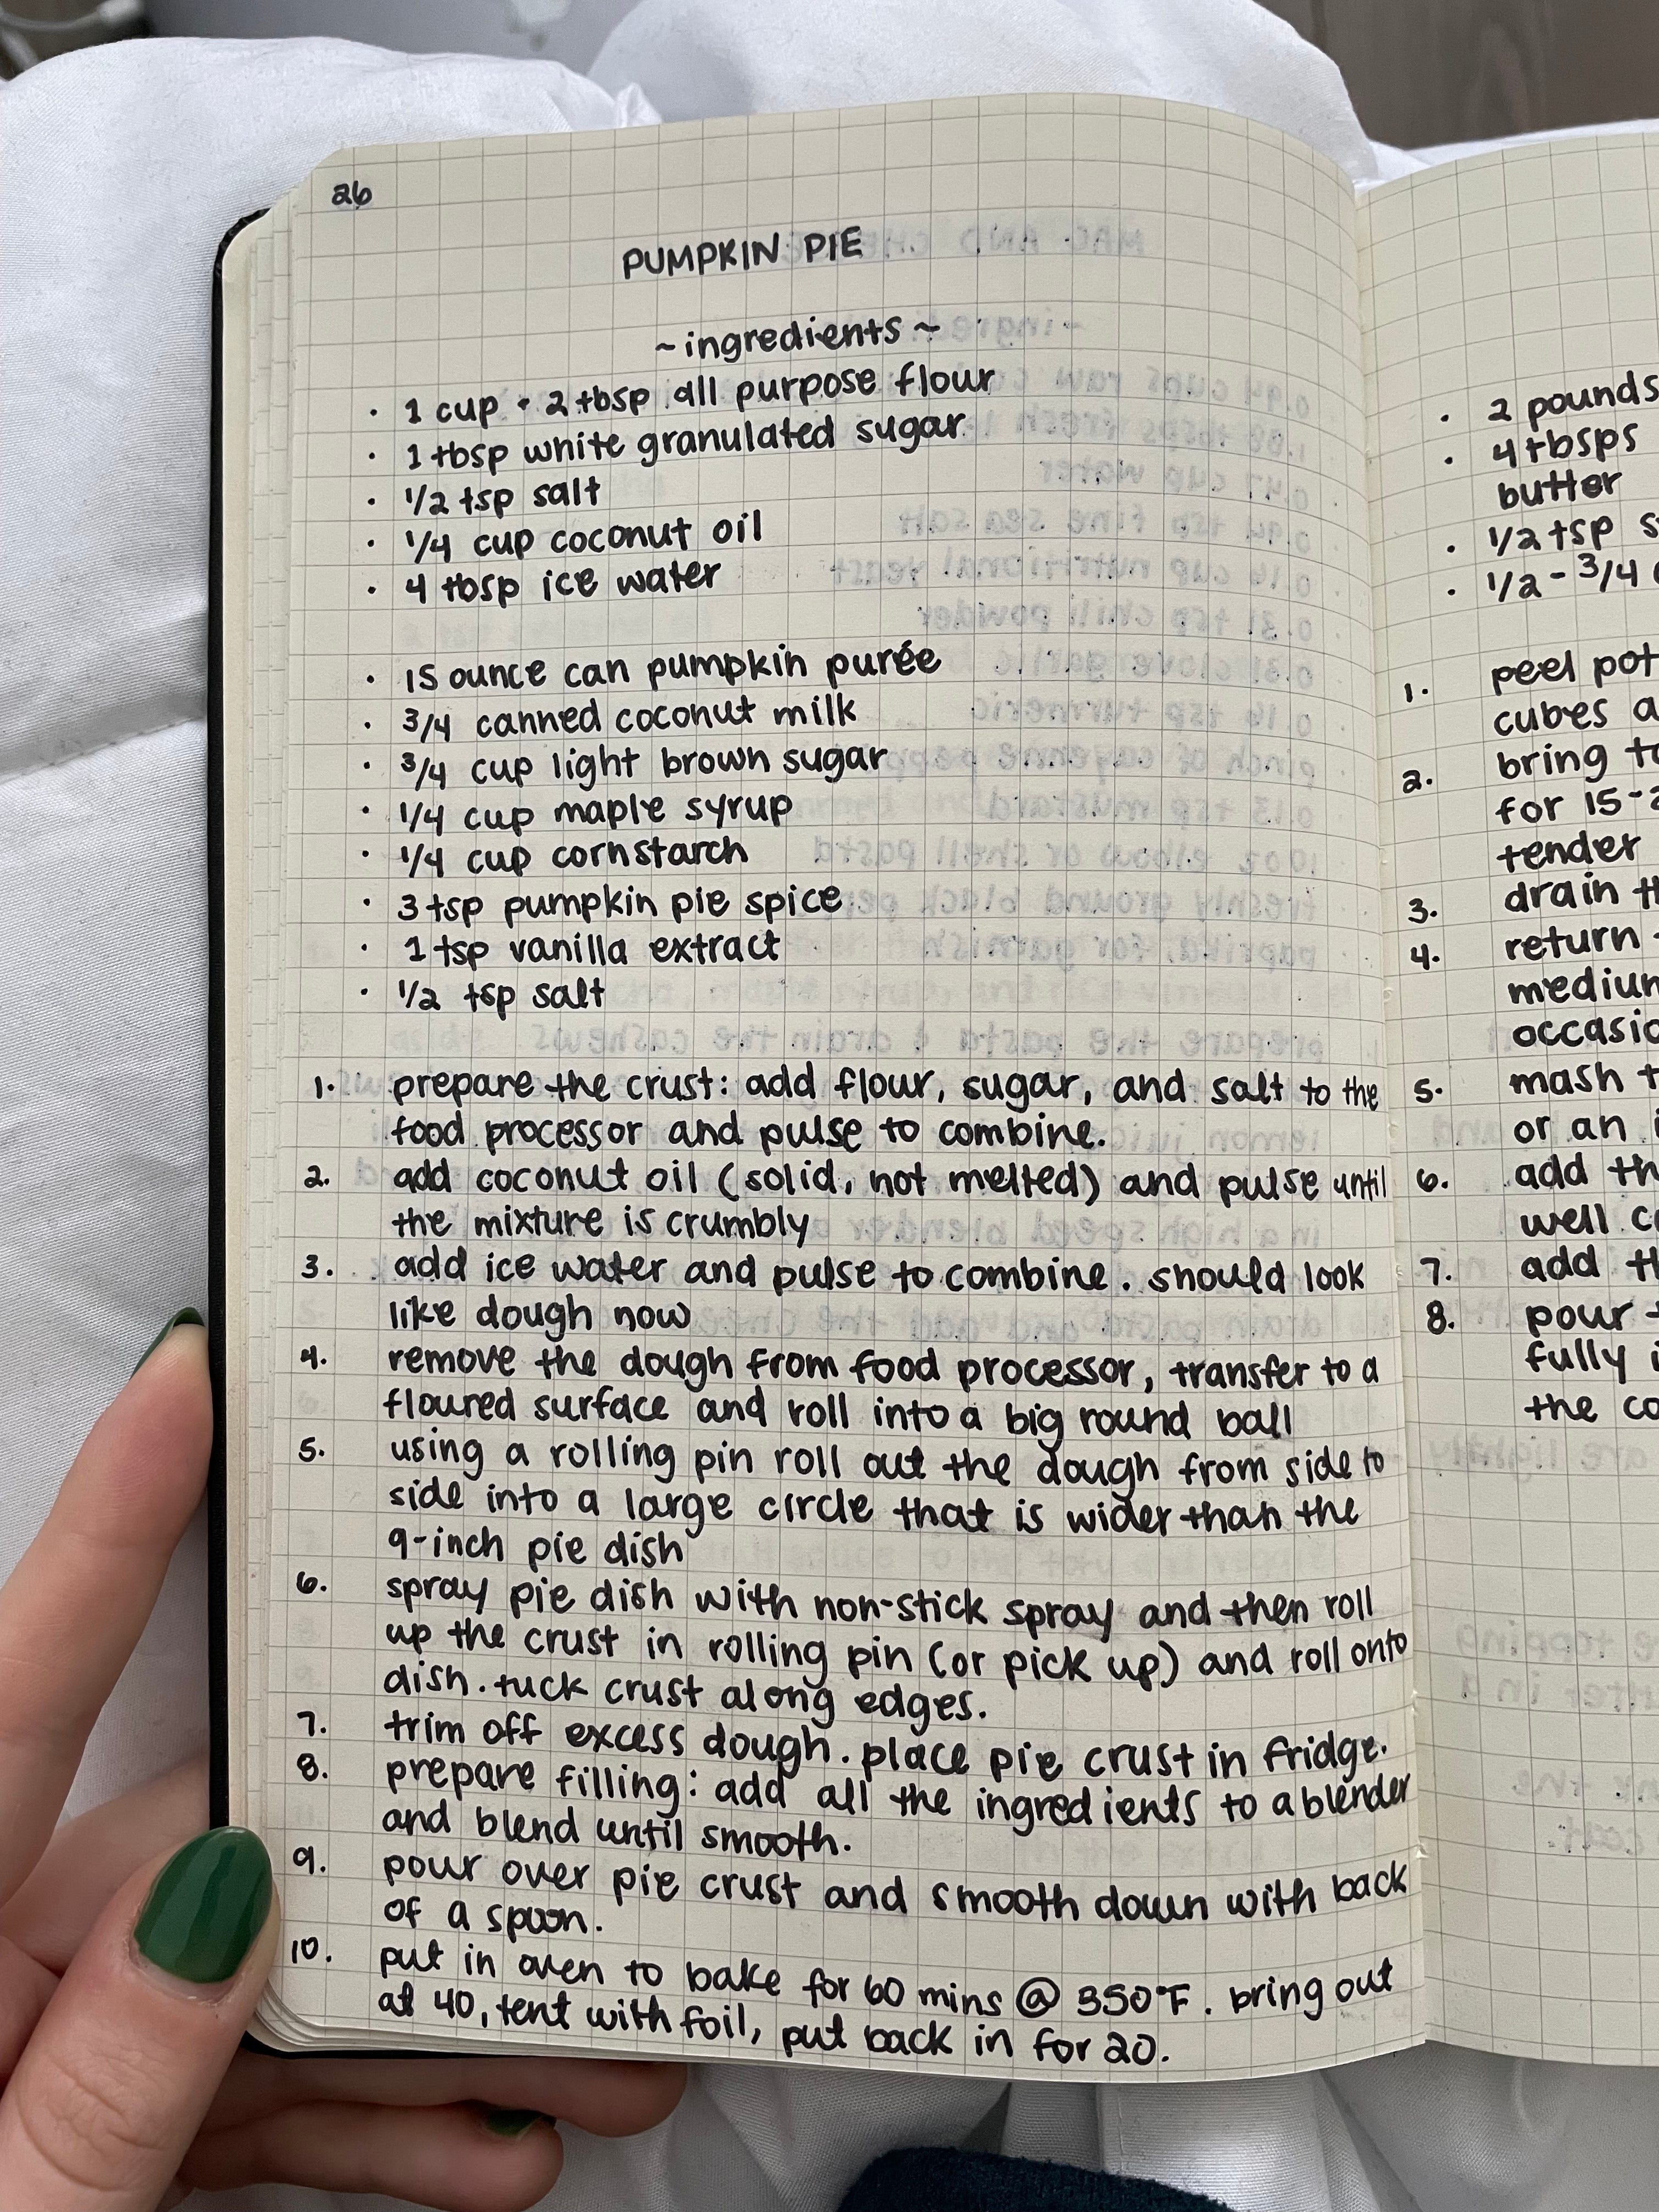 26
PUMPKIN PIE
~ingredients~
· 1 cup + 2 tbsp all purpose flour
· 1 tbsp white granulated sugar
· 1/2 tsp salt
· 1/4 cup coconut oil
· 4 tbsp ice water
· 15 ounce can pumpkin purée
· 3/4 canned coconut milk
· 3/4 cup light brown sugar
· 1/4 cup maple syrup
· 1/4 cup cornstarch
· 3 tsp pumpkin pie spice
· 1 tsp vanilla extract
· 1/2 tsp salt
1. prepare the crust: add flour, sugar, and salt to the
food processor and pulse to combine.
2. add coconut oil (solid, not melted) and pulse until
the mixture is crumbly
3. add ice water and pulse to combine. should look
like dough now
4. remove the dough from food processor, transfer to a
floured surface and roll into a big round ball
5. using a rolling pin roll out the dough from side to
side into a large circle that is wider than the
9-inch pie dish
6. spray pie dish with non-stick spray and then roll
up the crust in rolling pin (or pick up) and roll onto
dish. tuck crust along edges.
7. trim off excess dough. place pie crust in fridge.
8. prepare filling: add all the ingredients to a blender
and blend until smooth.
9. pour over pie crust and smooth down with back
of a spoon.
10. put in oven to bake for 60 mins @ 350°F. bring out
at 40, tent with foil, put back in for 20.
· 2 pounds
· 4 tbsps
butter
· 1/2 tsp
· 1/2 - 3/4
1. peel
cubes
2. bring
for 15-
tender
3. drain
4. return
medium
5. mash
or an
6. add
well
7. add
8. pour
fully
the